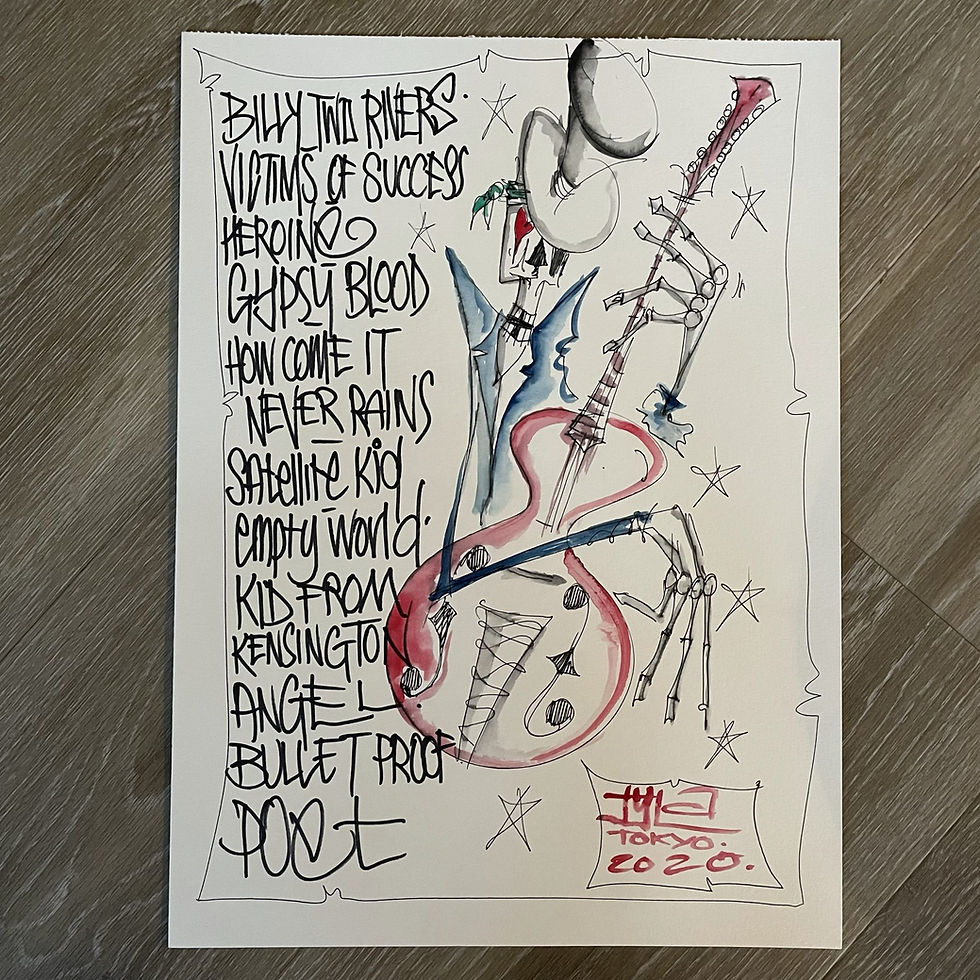 BILLY TWO RIVERS.
VICTIMS OF SUCCESS
HEROIN
GYPSY BLOOD
HOW COME IT
NEVER RAINS
SATEllITE KID
EMPTY WORlD.
KID FROM
KENSINGTON
ANGEL.
BULLET PROOF
POET
TYLA
TOKYO.
2020.